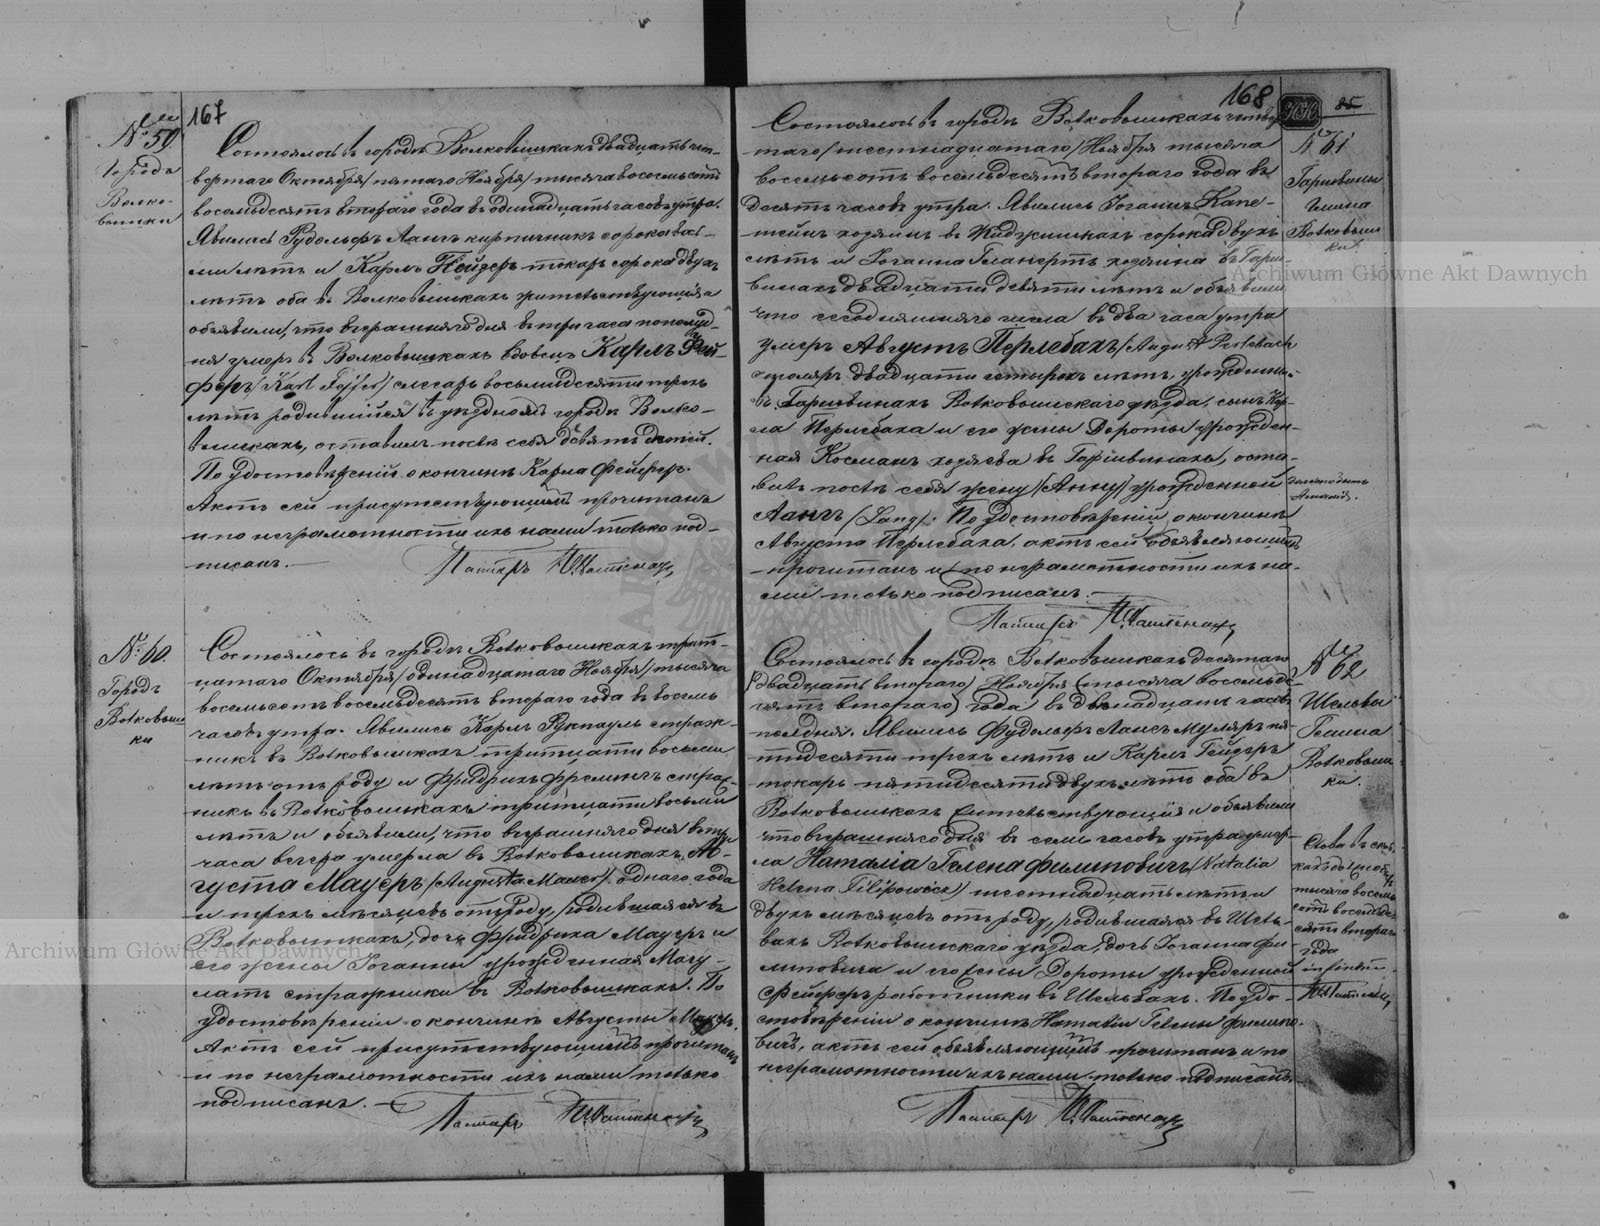 167
№ 59
Города
Волко-
вышки
Состоялось в городе Волковышках двадцать чет-
вертаго Октября /пятаго Ноября/ тысяча восемьсотъ
восемьдесятъ втораго года в одинадцать часовъ утра.
Явились Рудольфъ Лангъ кирпичникъ сорока вось-
ми летъ и Карлъ Гейдеръ токарь сорока двухъ
летъ оба в Волковышкахъ жительствующія и
объявили, что вчерашняго дня в три часа пополуд-
ня умеръ в Волковышкахъ вдовецъ Карлъ Фей-
феръ /Karl Fejfer/ слесарь восьмидесяти трехъ
летъ родившійся в уездномъ городе Волко-
вышкахъ, оставилъ после себя девять детей.
По удостовереній о кончине Карла Фейферъ.
Актъ сей присутствующимъ прочитанъ
и по неграмотности ихъ нами только под-
писанъ.
Пасторъ
№ 60.
Городъ
Волковыш
ки
Состоялось в городе Волковышкахъ трит-
цатаго Октября /одинадцатаго Ноября/ тысяча
восемьсотъ восемьдесятъ втораго года в восемь
часовъ утра. Явились Карлъ Рукпауль страж-
никъ в Волковышкахъ тритцати восьми
летъ отъ роду и Фридрихъ стра-
никъ в Волковышкахъ тритцати восьми
летъ и объявили, что вчерашняго дня в три
часа вечера умерла в Волковышкахъ Ав-
густа Мауеръ /Augusta Mauer/ однаго года
и трехъ месяцевъ отъ роду, родившаяся в
Волковышкахъ, дочь Фридриха Мауеръ и
его жены Іоганны урожденная
стражники в Волковышкахъ. По
удостовереніи о кончине Августы Мауеръ.
Актъ сей присутствующимъ прочитанъ
и по неграмотности ихъ нами только
подписанъ.
Пасторъ
168
85
№ 61
Гаршвины
Гмина
Волковыш
ки.
Состоялось в городе Волковышкахъ четвер
таго /шестнадцатаго/ Ноября тысяча
восемьсотъ восемьдесятъ втораго года в
десять часовъ утра. Явились Іоганъ Капе-
тейнъ хозяинъ в сорока двухъ
летъ и Іоганна хозяина в Гарш-
винахъ двадцати девяти летъ и объявили
что сегодняшняго числа в два часа утра
умеръ Августъ Перлебахъ /August Perlebach
столяръ двадцати четырехъ летъ, урожденный
в Гаршвинахъ Волковышскаго уезда, сынъ Кар-
ла Перлебаха и его жены Дороты урожден-
ная Косманъ хозяева в Гаршвинахъ, оста-
вивъ после себя жену /Анну/ урожденной
Лангъ /Lang/. По удостовереній о кончине
Августа Перлебаха, актъ сей объявляющимъ
прочитанъ и по неграмотности ихъ на-
ми только подписанъ.
должно быть
Пасторъ
№ 62
Шельвы
Гмина
Волковыш
ки.
Состоялось в городе Волковышкахъ десятаго
/двадцать втораго/ Ноября (тысяча восемьде-
сятъ втораго) года в двенадцать часовъ
полдня. Явились Рудольфъ Лансъ муляръ пя-
тидесяти трехъ летъ и Карлъ Гейдеръ
токарь пятидесяти двухъ летъ оба в
Волковышкахъ жительствующія и объявили
что вчерашняго дня в семь часовъ утра умер-
ла Наталіа Гелена Филиповичъ /Natalia
Helena Filipowicz) шестнадцать летъ и
двухъ месяцевъ отъ роду, родившаяся в Шель-
вахъ Волковышскаго уезда, дочь Іоганна Фи-
липовича и его жены Дороты урожденной
Фейферъ работники в Шельвахъ. По удо-
стовереніи о кончине Наталіи Гелены Филипо-
вичъ, актъ сей объявляющимъ прочитанъ и по
неграмотности ихъ нами только подписанъ.
Слова в скоб
кахъ
тысяча восемь
сотъ восемьде
сятъ втораго
года
Пасторъ
Archiwum Główne Akt Dawnych
Archiwum Główne Akt Dawnych